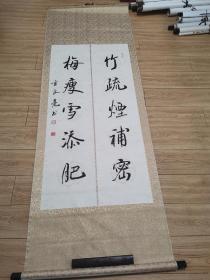 竹疏煙補密
梅瘦雪添肥